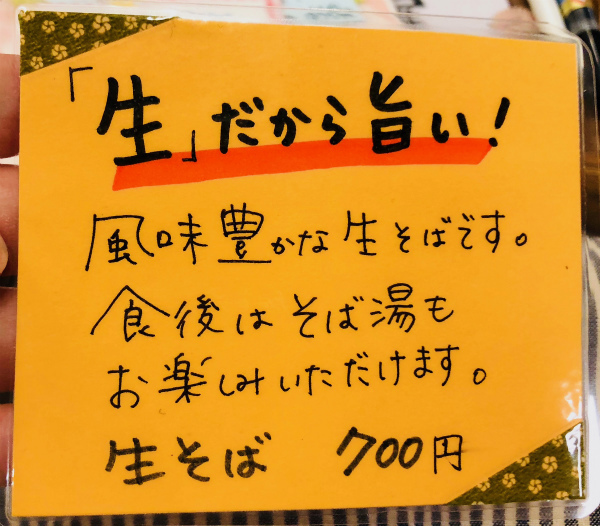 「生」だから旨い!
風味豊かな生そばです。
食後はそば湯も
お楽しみいただけます。
生そば 700円